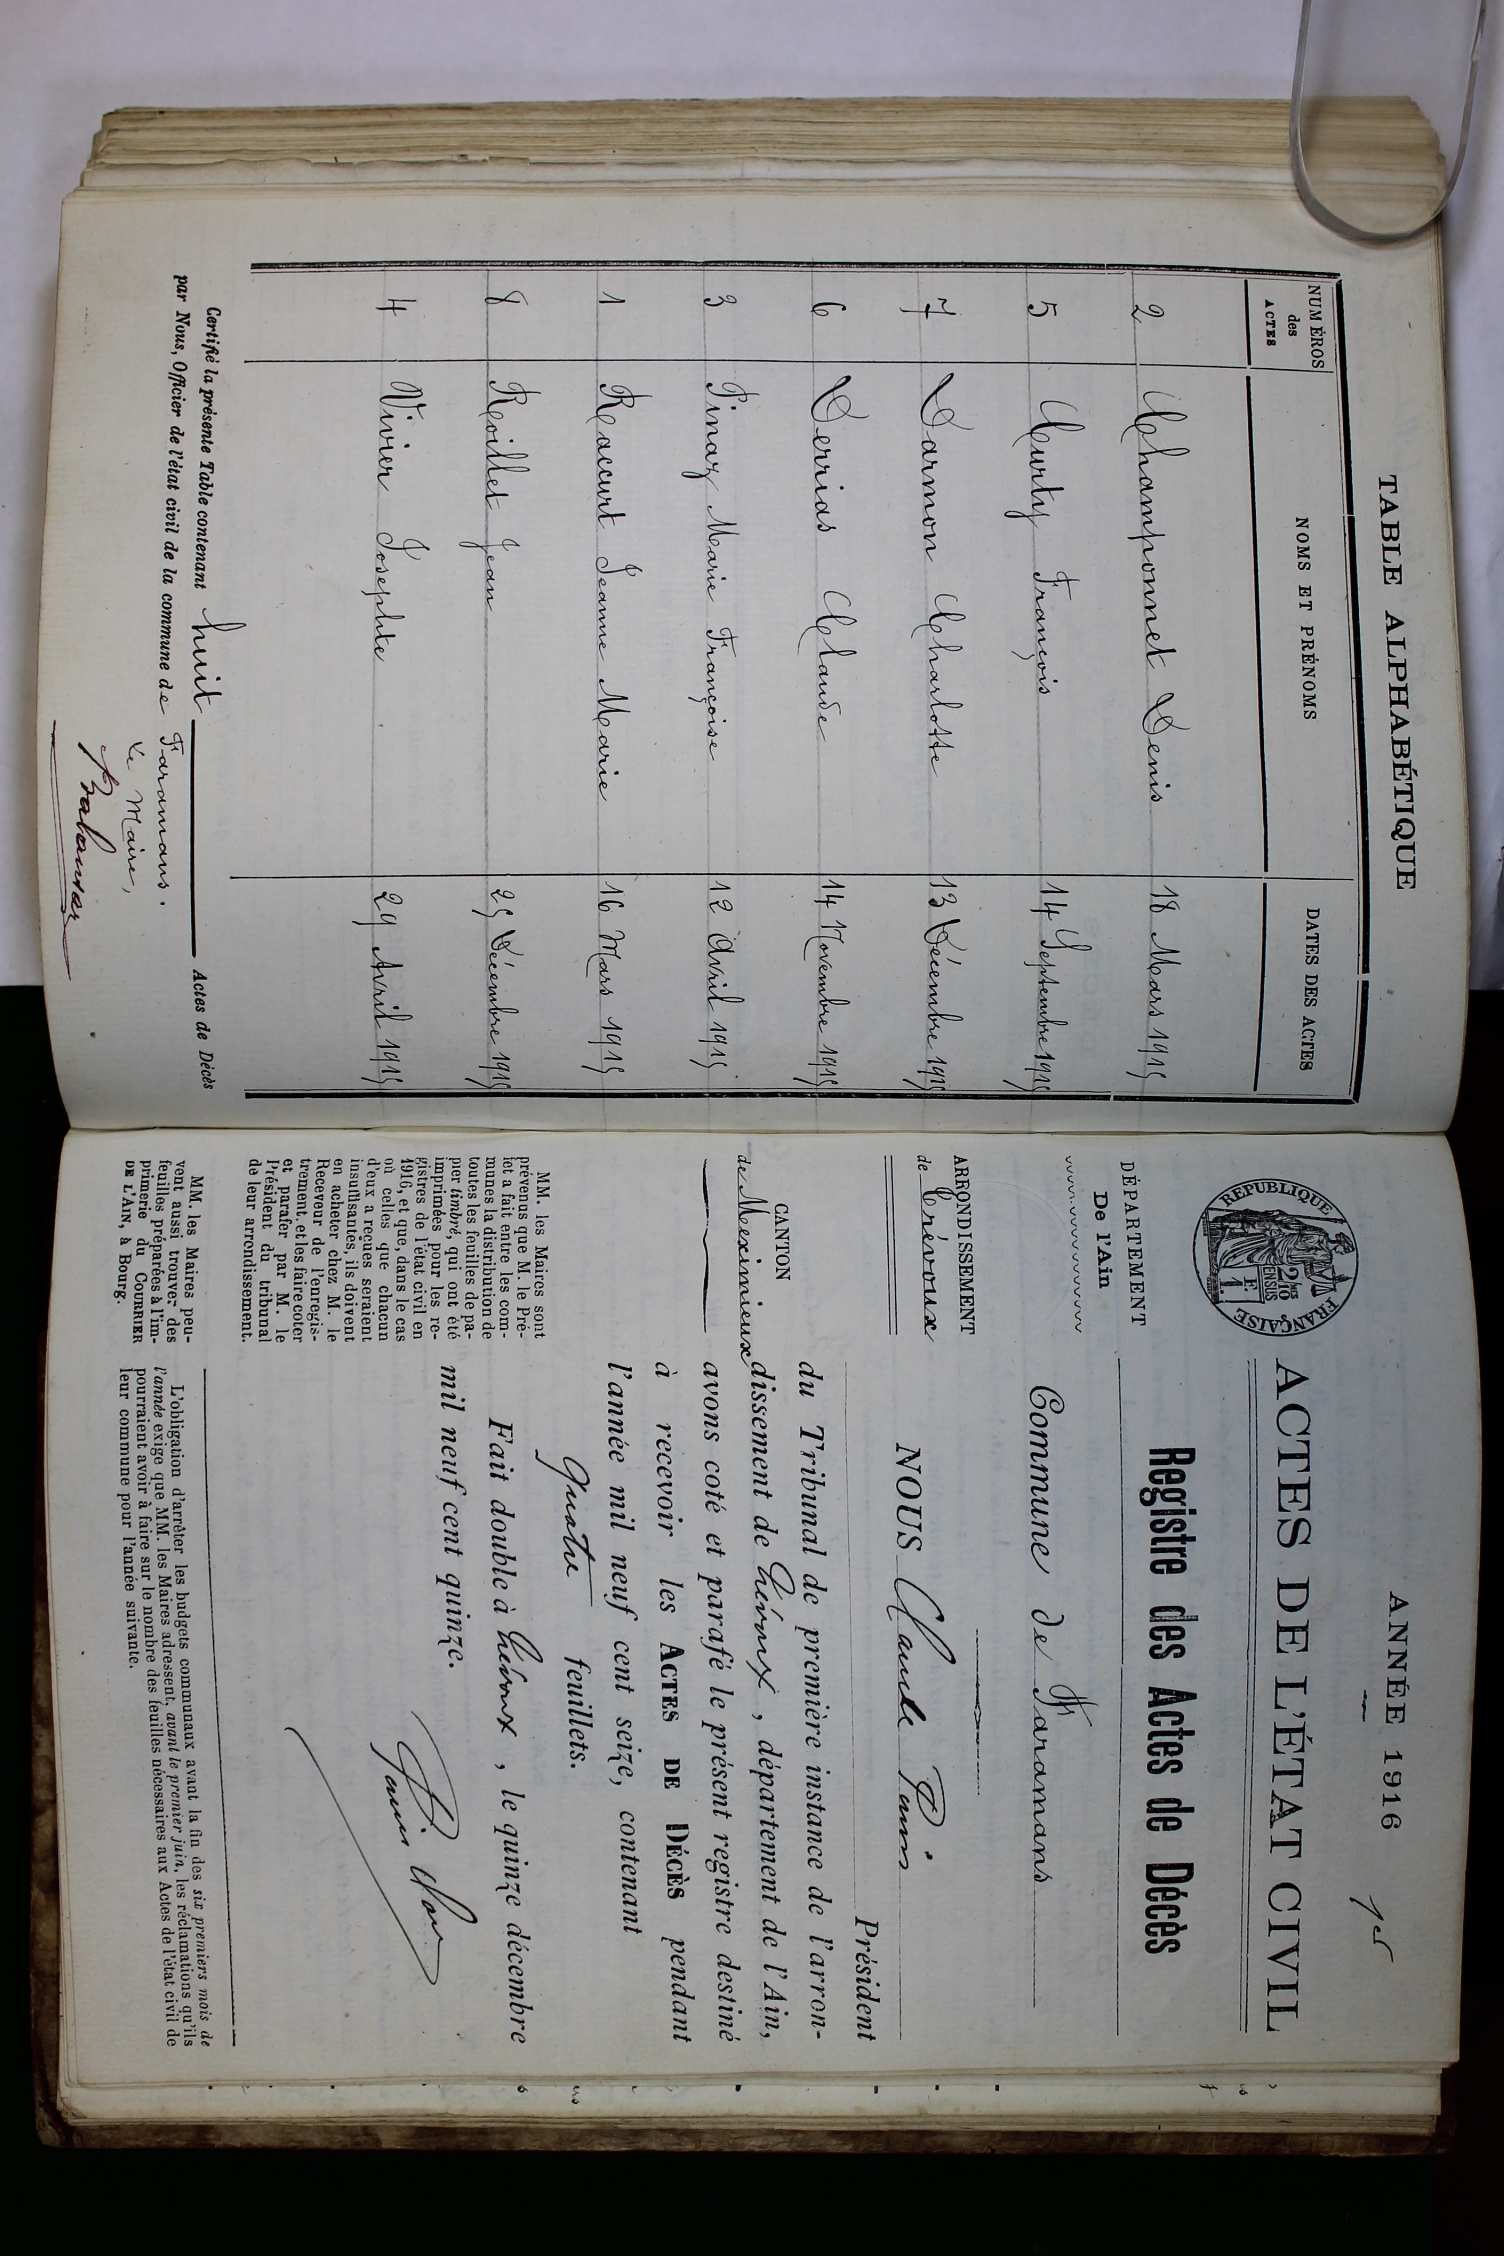 TABLE ALPHABÉTIQUE
NUMÉROS des ACTES
NOMS ET PRÉNOMS
DATES DES ACTES
2 Champonnet Denis 18 Mars 1915
5 Curty François 14 Septembre 1915
7 Darmon Charlotte 13 Décembre 1915
6 Derrias Claude 14 Novembre 1915
3 Pinaz Marie Françoise 12 Avril 1915
1 Raccurt Jeanne Marie 16 Mars 1915
8 Roillet Jean 25 Décembre 1915
4 Vivier Josephte 29 Avril 1915
Certifié la présente Table contenant huit Actes de Décès
par Nous, Officier de l'état civil de la commune de Faramans.
Le Maire,
ANNÉE 1916
1er
ACTES DE L'ÉTAT CIVIL
REPUBLIQUE FRANÇAISE
2/10es EN SUS
F. 1.
Registre des Actes de Décès
DÉPARTEMENT
De l'Ain
ARRONDISSEMENT
de Trévoux
CANTON
de Meximieux
MM. les Maires sont
prévenus que M. le Pré-
fet a fait entre les com-
munes la distribution de
toutes les feuilles de pa-
pier timbré, qui ont été
imprimées pour les re-
gistres de l'état civil en
1916, et que, dans le cas
où celles que chacun
d'eux a reçues seraient
insuffisantes, ils doivent
en acheter chez M. le
Receveur de l'enregis-
trement, et les faire coter
et parafer par M. le
Président du tribunal
de leur arrondissement.
MM. les Maires peu-
vent aussi trouver des
feuilles préparées à l'im-
primerie du COURRIER
DE L'AIN, à Bourg.
Commune de Faramans
NOUS Claude Pauin
Président
du Tribunal de première instance de l'arron-
dissement de Trévoux, département de l'Ain,
avons coté et parafé le présent registre destiné
à recevoir les ACTES DE DÉCÈS pendant
l'année mil neuf cent seize, contenant
quatre feuillets.
Fait double à Trévoux, le quinze décembre
mil neuf cent quinze.
L'obligation d'arrêter les budgets communaux avant la fin des six premiers mois de
l'année exige que MM. les Maires adressent, avant le premier juin, les réclamations qu'ils
pourraient avoir à faire sur le nombre des feuilles nécessaires aux Actes de l'état civil de
leur commune pour l'année suivante.